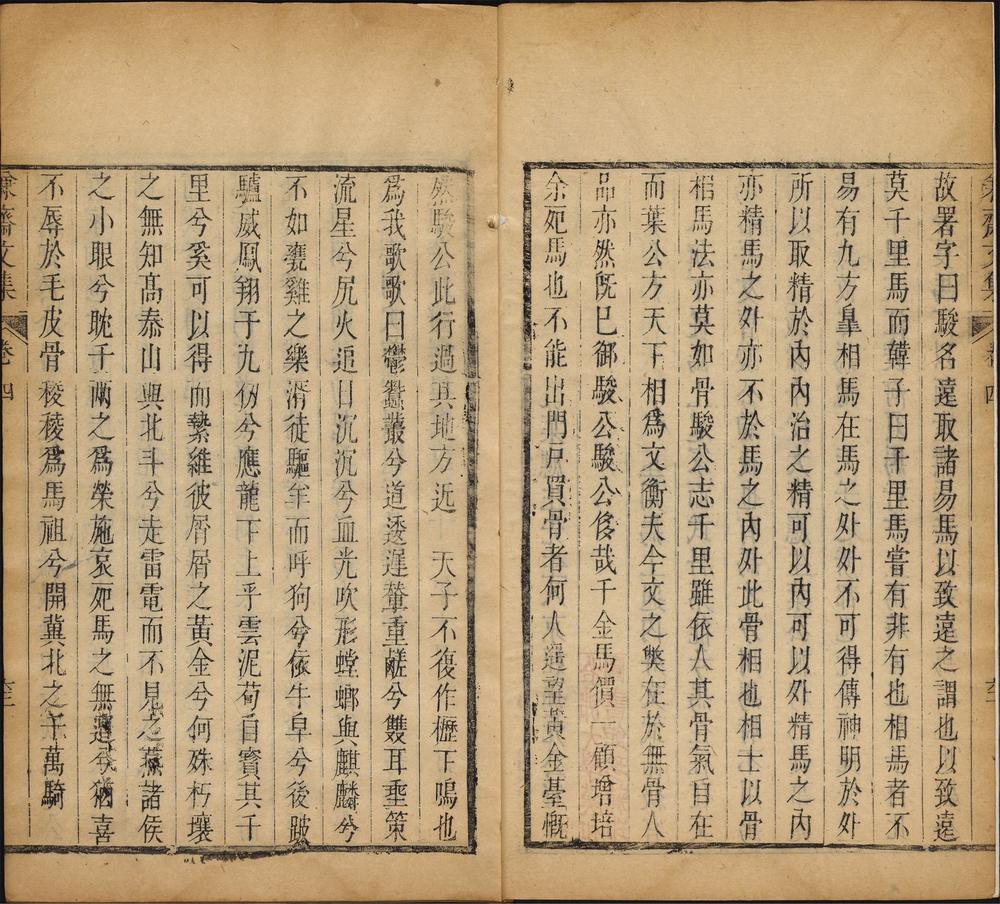 故署字曰駿名遠取諸易馬以致遠之謂也以致遠
莫千里馬而韓子曰千里馬嘗有非有也相馬者不
易有九方臯相馬在馬之外外不可得傳神明於外
所以取精於內內治之精可以內可以外精馬之內
亦精馬之外亦不於馬之內外此骨相也相士以骨
相馬法亦莫如骨駿公志千里雖依人其骨氣自在
而葉公方天下相爲文衡夫今文之獘在於無骨人
品亦然旣已御駿公駿公侈哉千金馬價一顧增培
余死馬也不能出門戸買骨者何人遥望黃金臺慨
然駿公此行過其地方近 天子不復作櫪下鳴也
爲我歌歌曰鬱蠶叢兮道逶遲輦重鹺兮雙耳垂策
流星兮尻火追日沉沉兮血光吹形螳螂與麒麟兮
不如甕雞之樂湑徒驅羊而呼狗兮依牛皁兮後跛
驢威鳳翔于九仞兮應龍下上乎雲泥荀自賓其千
里兮奚可以得而縶維彼屑屑之黃金兮何殊朽壤
之無知高泰山與北斗兮走雷電而不見之燕諸侯
之小眼兮眈千兩之爲榮施哀死馬之無遺兮猶喜
不辱於毛皮骨稜稜爲馬祖兮開冀北之千萬騎
齋文集 卷四